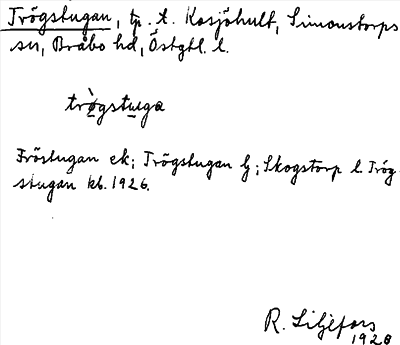 Trögstugan, tp. t. Kosjöhult, Simonstorps
sn, Bråbo hd, Östgtl. l.
trògstuga
Fröstugan ek; Trögstugan lj; Skogstorp l. Trög-
stugan kb. 1926.
R. Liljefors
1928